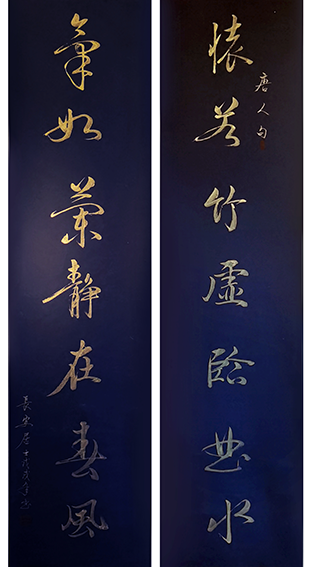 懷若竹虛臨曲水
唐人句
氣如蘭靜在春風
長安居士